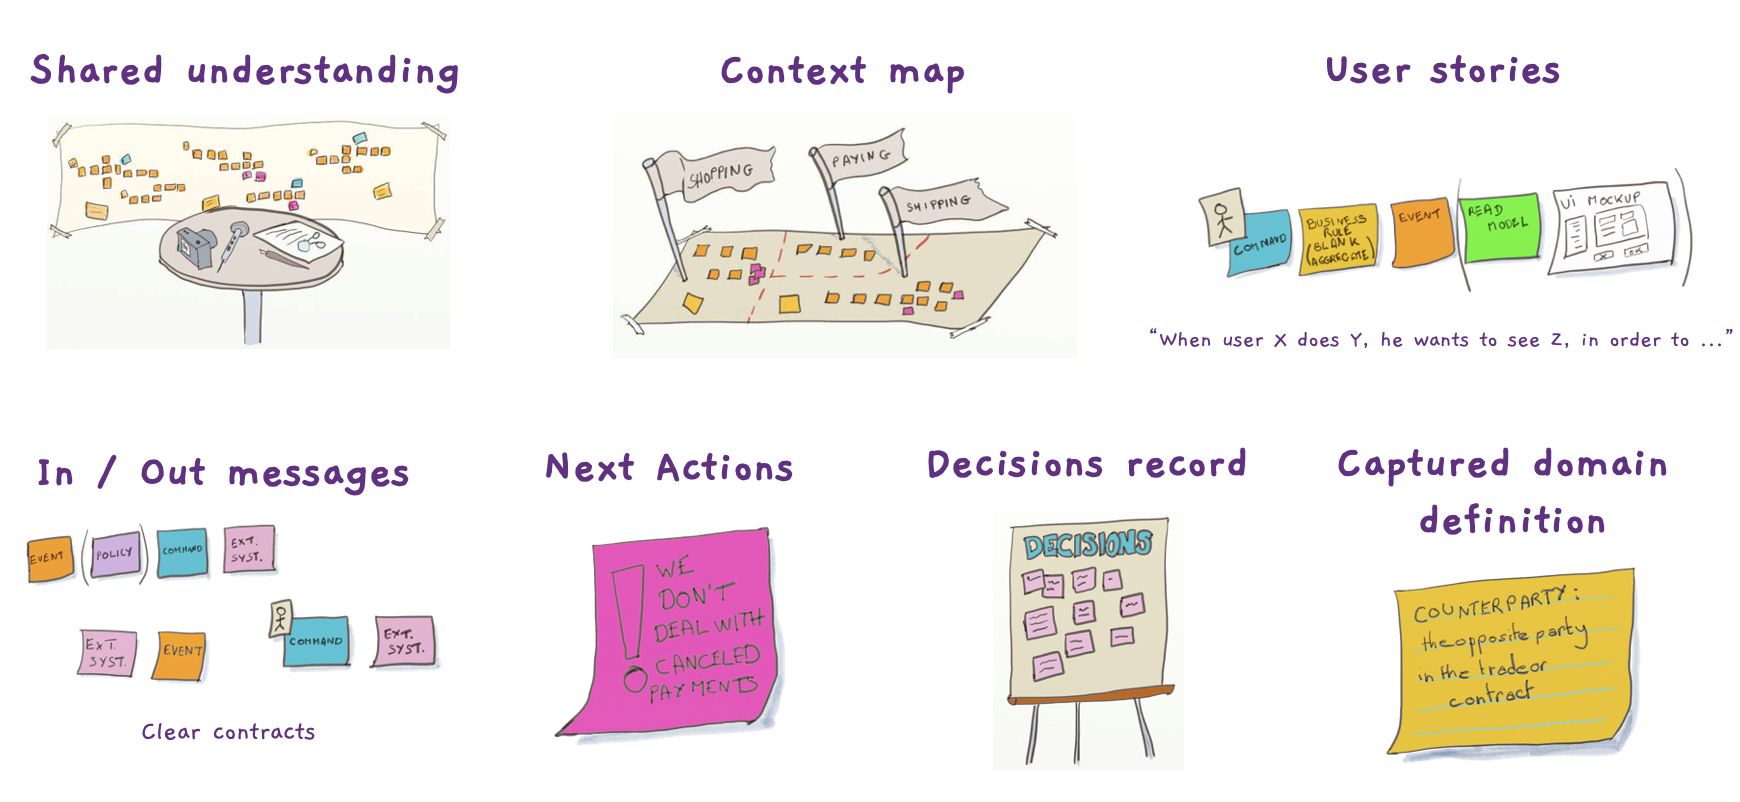 Shared understanding
Context map
SHOPPING
PAYING
SHIPPING
User stories
COMMAND
BUSINESS
RULE
(BLANK
AGGREGATE)
EVENT
READ
MODEL
Ui MOCKUP
OK
“When user X does Y, he wants to see Z, in order to ...”
In / Out messages
EVENT
POLICY
COMMAND
EXT.
SYST.
EXT.
SYST.
EVENT
COMMAND
EXT.
SYST.
Clear contracts
Next Actions
! WE
DON'T
DEAL WITH
CANCELED
PAYMENTS
Decisions record
DECISIONS
Captured domain
definition
COUNTERPARTY:
the opposite party
in the trade or
contract